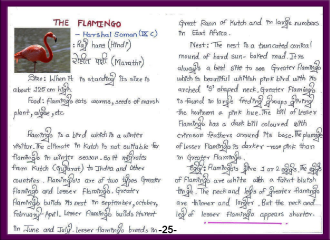 THE FLAMINGO
- Harshal Soman (IX C)
: हंस hans (Hindi)
रोहित पक्षी (Marathi)
Size: When it is standing its size is
about 225 cm high.
Food: Flamingo eats worms, seeds of marsh
plant, algae, etc.
Flamingo is a bird which is a winter
visitor. The climate in Kutch is not suitable for
flamingo in winter season. So it migrates
from Kutch (Gujrat) to India and other
countries. Flamingos are of two types Greater
and lesser Flamingo. Greater
Flamingo builds its nest in september, october,
February, April. Lesser Flamingo builds its nest
in June and July. Lesser flamingo breeds in
-25-
Great Rann of Kutch and in large numbers
in East Africa.
Nest: The nest is a truncated conical
mound of hard sun-baked mud. It is
always a best site to see Greater Flamingo
which is beautiful whitish pink bird with its
arched 'S' shaped neck. Greater Flamingo
is found in large feeding groups giving
the horizon a pink hue. The bill of lesser
Flamingo has a dark bill coloured with
crimson feathers around its base. The plumage
of lesser Flamingo is darker rose pink than
in Greater Flamingo.
Eggs: Flamingo give 1 or 2 eggs. The eggs
of Flamingo are white with a faint bluish
tinge. The neck and legs of greater flamingo
are thinner and longer. But the neck and
leg of lesser Flamingo appears shorter.